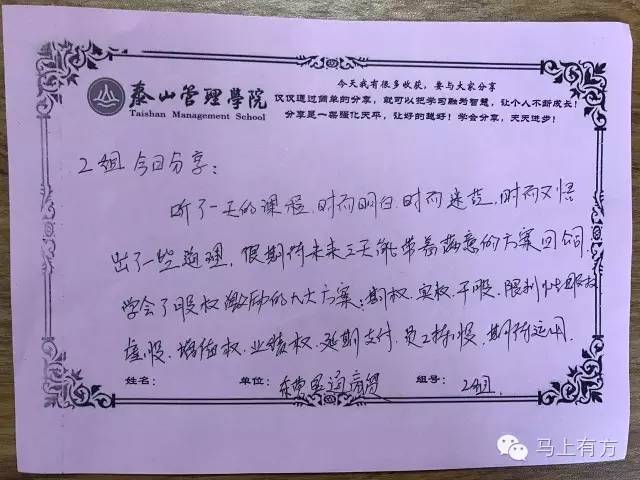 泰山管理學院
Taishan Management School
今天我有很多收获，要与大家分享
仅仅通过简单的分享，就可以把学习融为智慧，让个人不断成长！
分享是一架强化天平，让好的越好！学会分享，天天进步！
2组 今日分享：
听了一天的课程，时而明白，时而迷茫，时而又悟
出了一些道理，很期待未来三天能带着满意的方案回公司，
学会了股权激励的九大方案：期权、实权、干股、限制性股权
虚股、增值权、业绩权、延期支付、员工持股，期待运用。
姓名：
单位：
通商贸
组号：
2组
马上有方